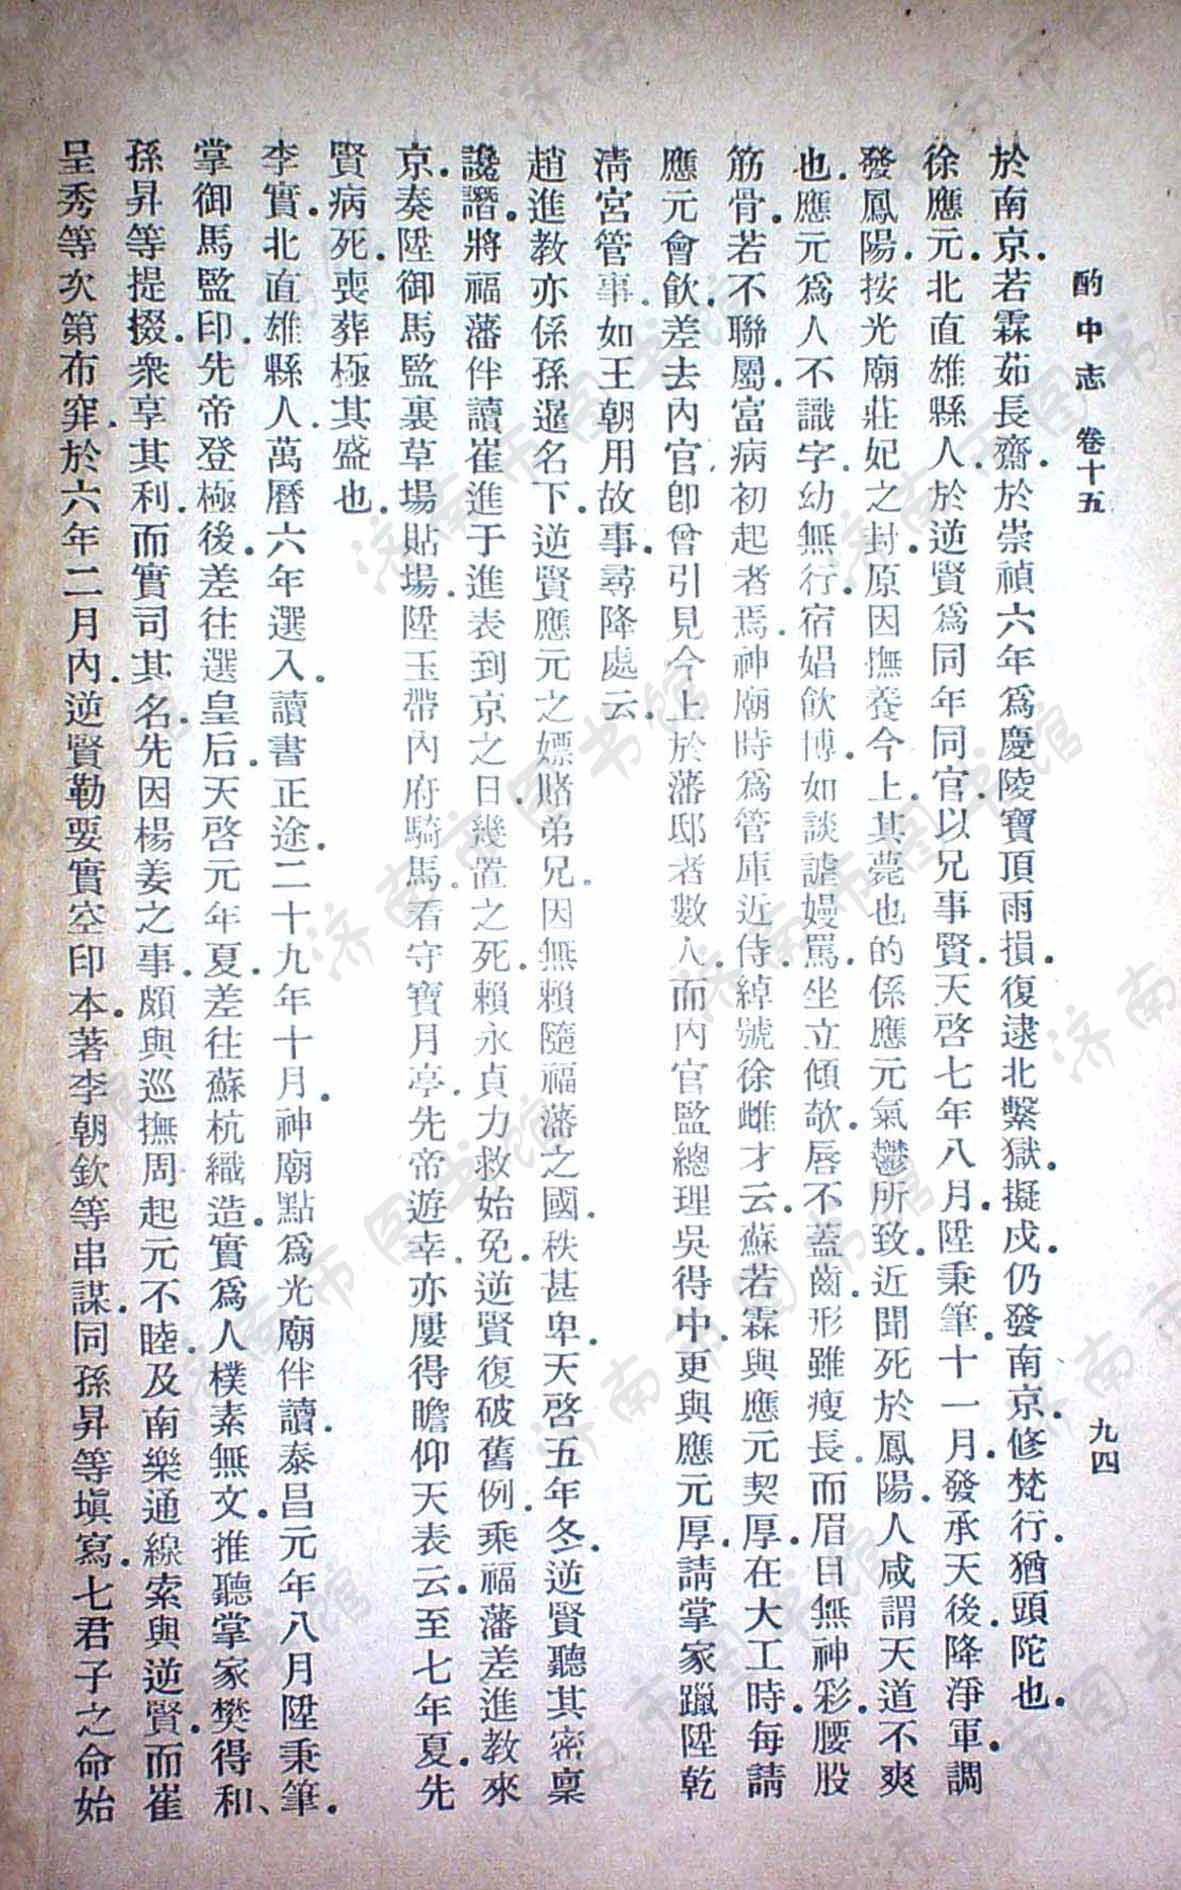 酌中志　卷十五　九四
於南京．若霖茹長齋．於崇禎六年爲慶陵寶頂雨損．復逮北繫獄．擬戍．仍發南京．修梵行．猶頭陀也．
徐應元．北直雄縣人．於逆賢爲同年同官．以兄事賢．天啓七年八月．陞秉筆．十一月．發承天．後降淨軍．調
發鳳陽．按光廟莊妃之封．原因撫養今上．其薨也．的係應元氣鬱所致．近聞死於鳳陽．人咸謂天道不爽
也．應元爲人不識字．幼無行．宿娼飲博．如談謔嫚罵．坐立傾欹．唇不蓋齒．形雖瘦長．而眉目無神彩．腰股
筋骨．若不聯屬．富病初起者焉．神廟時爲管庫近侍．綽號徐雌才云．蘇若霖與應元契厚．在大工時．每請
應元會飲．差去內官．卽曾引見今上於藩邸者數人．而內官監總理吳得中．更與應元厚．請掌家躐陞乾
清宮管事．如王朝用故事．尋降處云．
趙進教．亦係孫暹名下．逆賢應元之嫖賭弟兄．因無賴隨福藩之國．秩甚卑．天啓五年冬．逆賢聽其密稟
讒譖．將福藩伴讀崔進于進表到京之日．幾置之死．賴永貞力救始免．逆賢復破舊例．乘福藩差進教來
京．奏陞御馬監裏草場貼場．陞玉帶．內府騎馬．看守寶月亭．先帝遊幸．亦屢得瞻仰天表云．至七年夏．先
賢病死．喪葬極其盛也．
李實．北直雄縣人．萬曆六年選入．讀書正途．二十九年十月．神廟點爲光廟伴讀．泰昌元年八月陞秉筆．
掌御馬監印．先帝登極後．差往選皇后．天啓元年夏．差往蘇杭織造．實爲人樸素無文．推聽掌家樊得和、
孫昇等提掇．衆享其利．而實司其名．先因楊姜之事．頗與巡撫周起元不睦．及南樂通線索與逆賢．而崔
呈秀等次第布穽．於六年二月內．逆賢勒要實空印本．著李朝欽等串謀．同孫昇等塡寫．七君子之命始